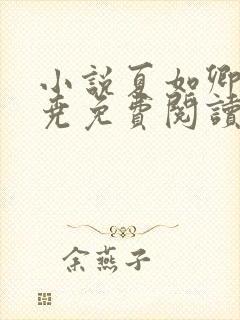 小說夏如卿
堯免費閱讀
余燕子